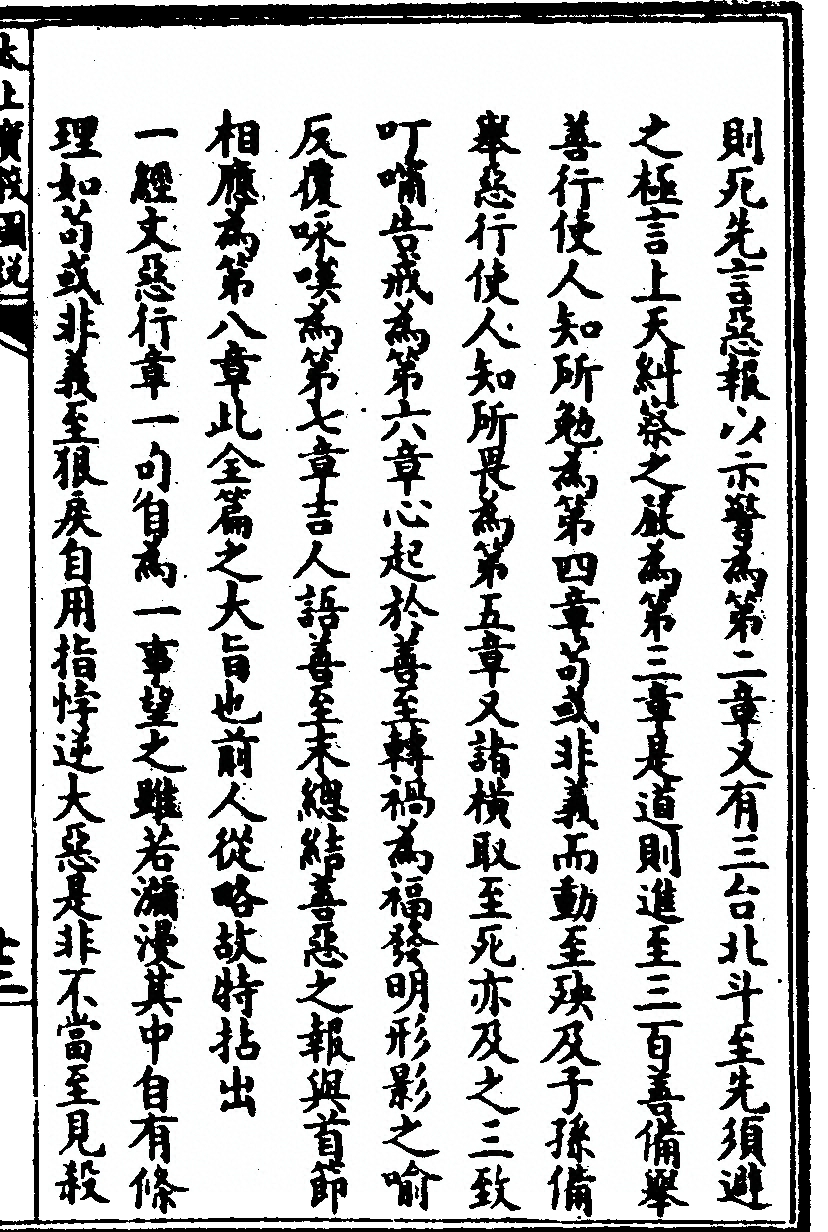 則死先言惡報以示警為第二章又有三台北斗至先須避
之極言上天糾察之嚴為第三章是道則進至三百善備舉
善行使人知所勉為第四章苟或非義而動至殃及子孫備
舉惡行使人知所畏為第五章又諸橫取至死亦及之三致
叮嚀告戒為第六章心起於善至轉禍為福發明形影之喻
反覆咏嘆為第七章吉人語善至末總結善惡之報與首節
相應為第八章此全篇之大旨也前人從略故特拈出
一經文惡行章一句自為一事望之雖若瀰漫其中自有條
理如苟或非義至狠戾自用指悖逆大惡是非不當至見殺
太上寶筏圖說
廿二